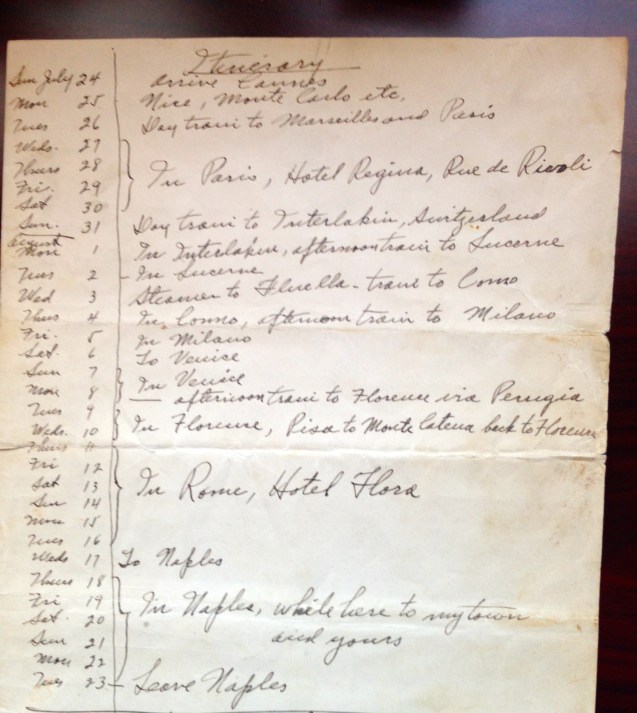 Itinerary
Sun July 24 arrive Cannes
Mon 25 Nice, Monte Carlo etc.
Tues 26 Day train to Marseilles and Paris
Weds. 27
Thurs 28 In Paris, Hotel Regina, Rue de Rivoli
Fri. 29
Sat 30
Sun. 31 Day train to Interlaken, Switzerland
August
Mon 1 In Interlaken, afternoon train to Lucerne
Tues 2 - In Lucerne
Wed 3 Steamer to - train to Como
Thurs 4 In Como, afternoon train to Milano
Fri. 5 In Milano
Sat. 6 To Venice
Sun 7 In Venice
Mon 8 — afternoon train to Florence via Perugia
Tues 9
Weds. 10 In Florence, Pisa to Monte back to Florence
Thurs 11
Fri 12
Sat 13 In Rome, Hotel Flora
Sun 14
Mon 15
Tues 16
Weds 17 To Naples
Thurs 18
Fri 19 In Naples, while here to my town
Sat. 20 and yours
Sun 21
Mon 22
Tues 23 - Leave Naples